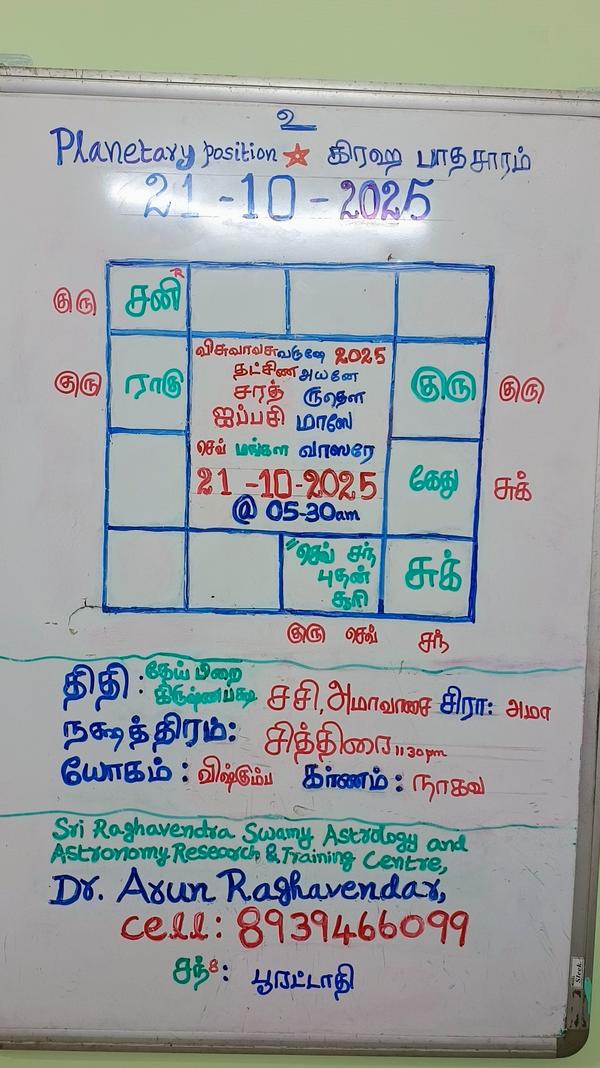 உ
Planetary position கிரஹ பாதசாரம்
21-10-2025
குரு சனி R
விசுவாவசுவருஷே 2025
தட்சிண அயனே
சரத் ருதௌ
ஐப்பசி மாஸே
செவ் மங்கள வாஸரே
21-10-2025
@ 05-30am
குரு ராகு
குரு குரு
கேது சுக்
"செவ் சந்
புதன்
சூரி
சுக்
குரு செவ் சந்
திதி : தேய் பிறை
கிருஷ்ணபக்ஷ
சசி, அமாவாசை சிரா: அமா
நக்ஷத்திரம்: சித்திரை 11 30pm
யோகம் : விஷ்கும்ப கர்ணம் : நாகவ
Sri Raghavendra Swamy Astrology and
Astronomy Research & Training Centre,
Dr. Arun Raghavendar,
Cell: 8939466099
சந் 8 : பூரட்டாதி